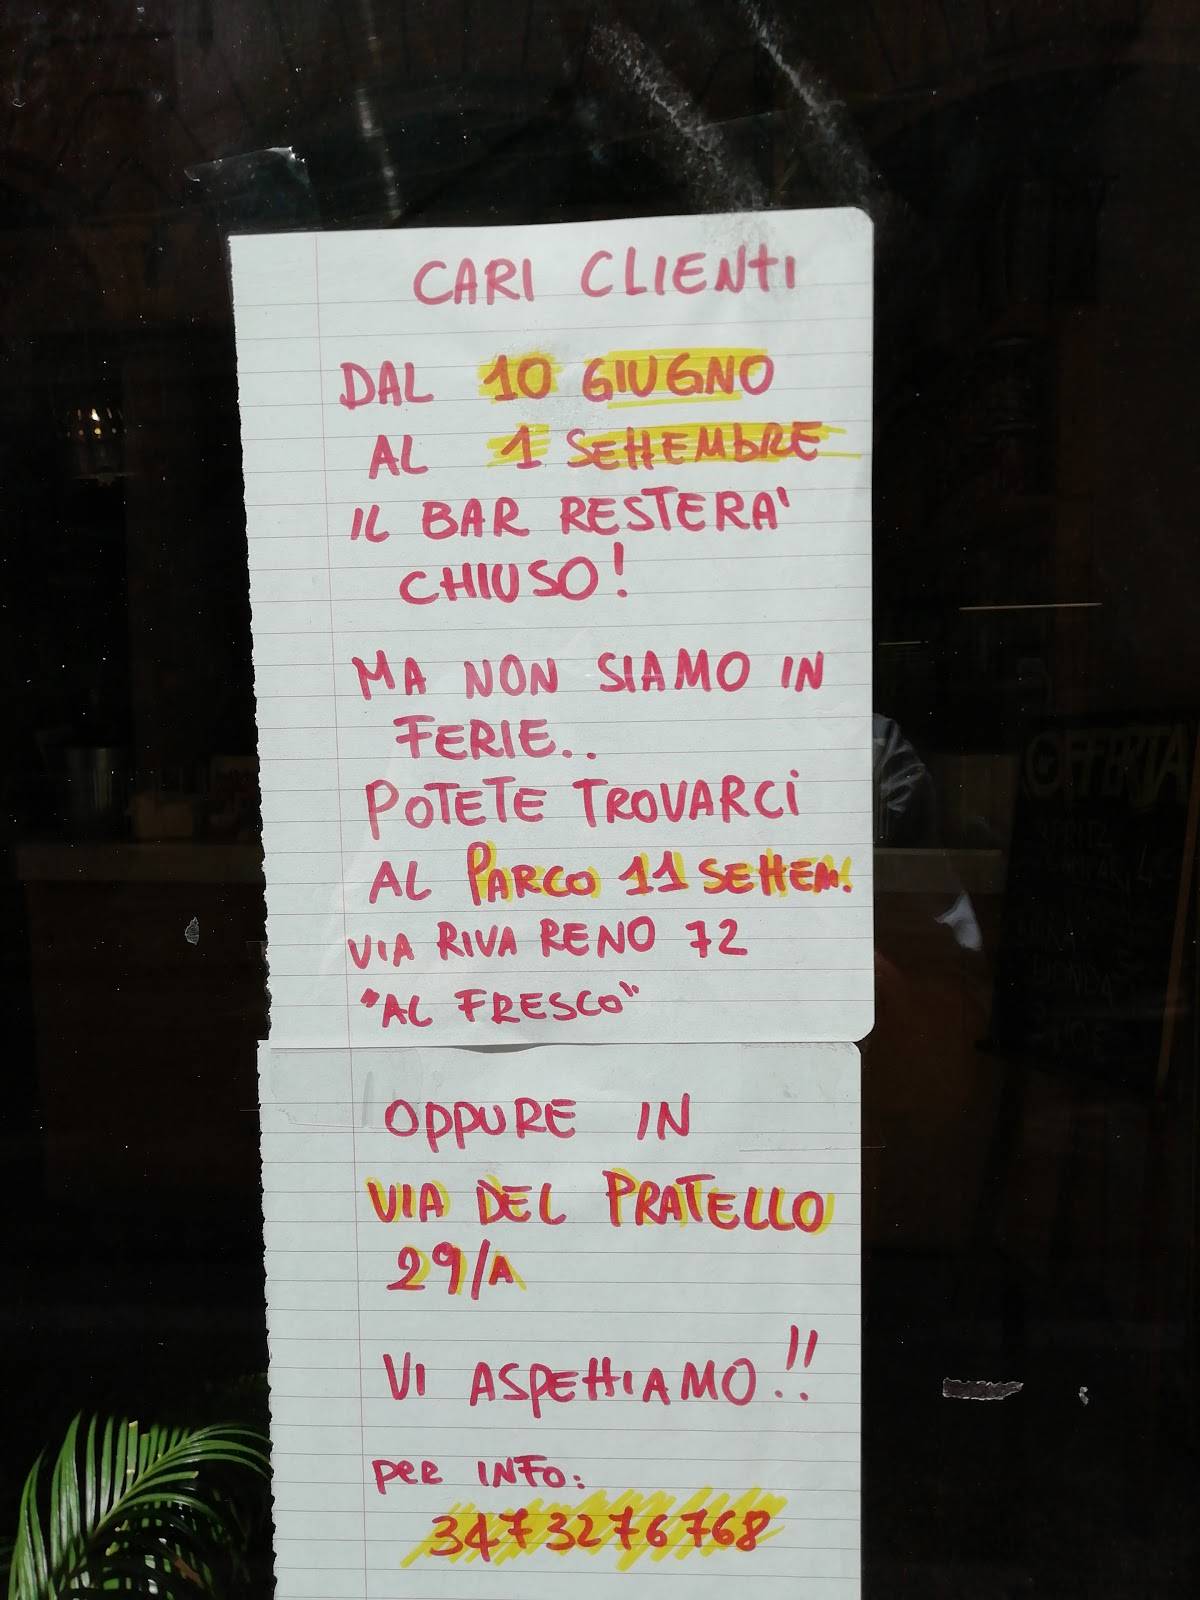 CARI CLIENTI
DAL 10 GIUGNO
AL 1 SETTEMBRE
IL BAR RESTERA'
CHIUSO!
MA NON SIAMO IN
FERIE..
POTETE TROVARCI
AL PARCO 11 SETTEM.
VIA RIVA RENO 72
"AL FRESCO"
OPPURE IN
VIA DEL PRATELLO
29/A
VI ASPETTIAMO!!
PER INFO:
3473276768
OFFERTA